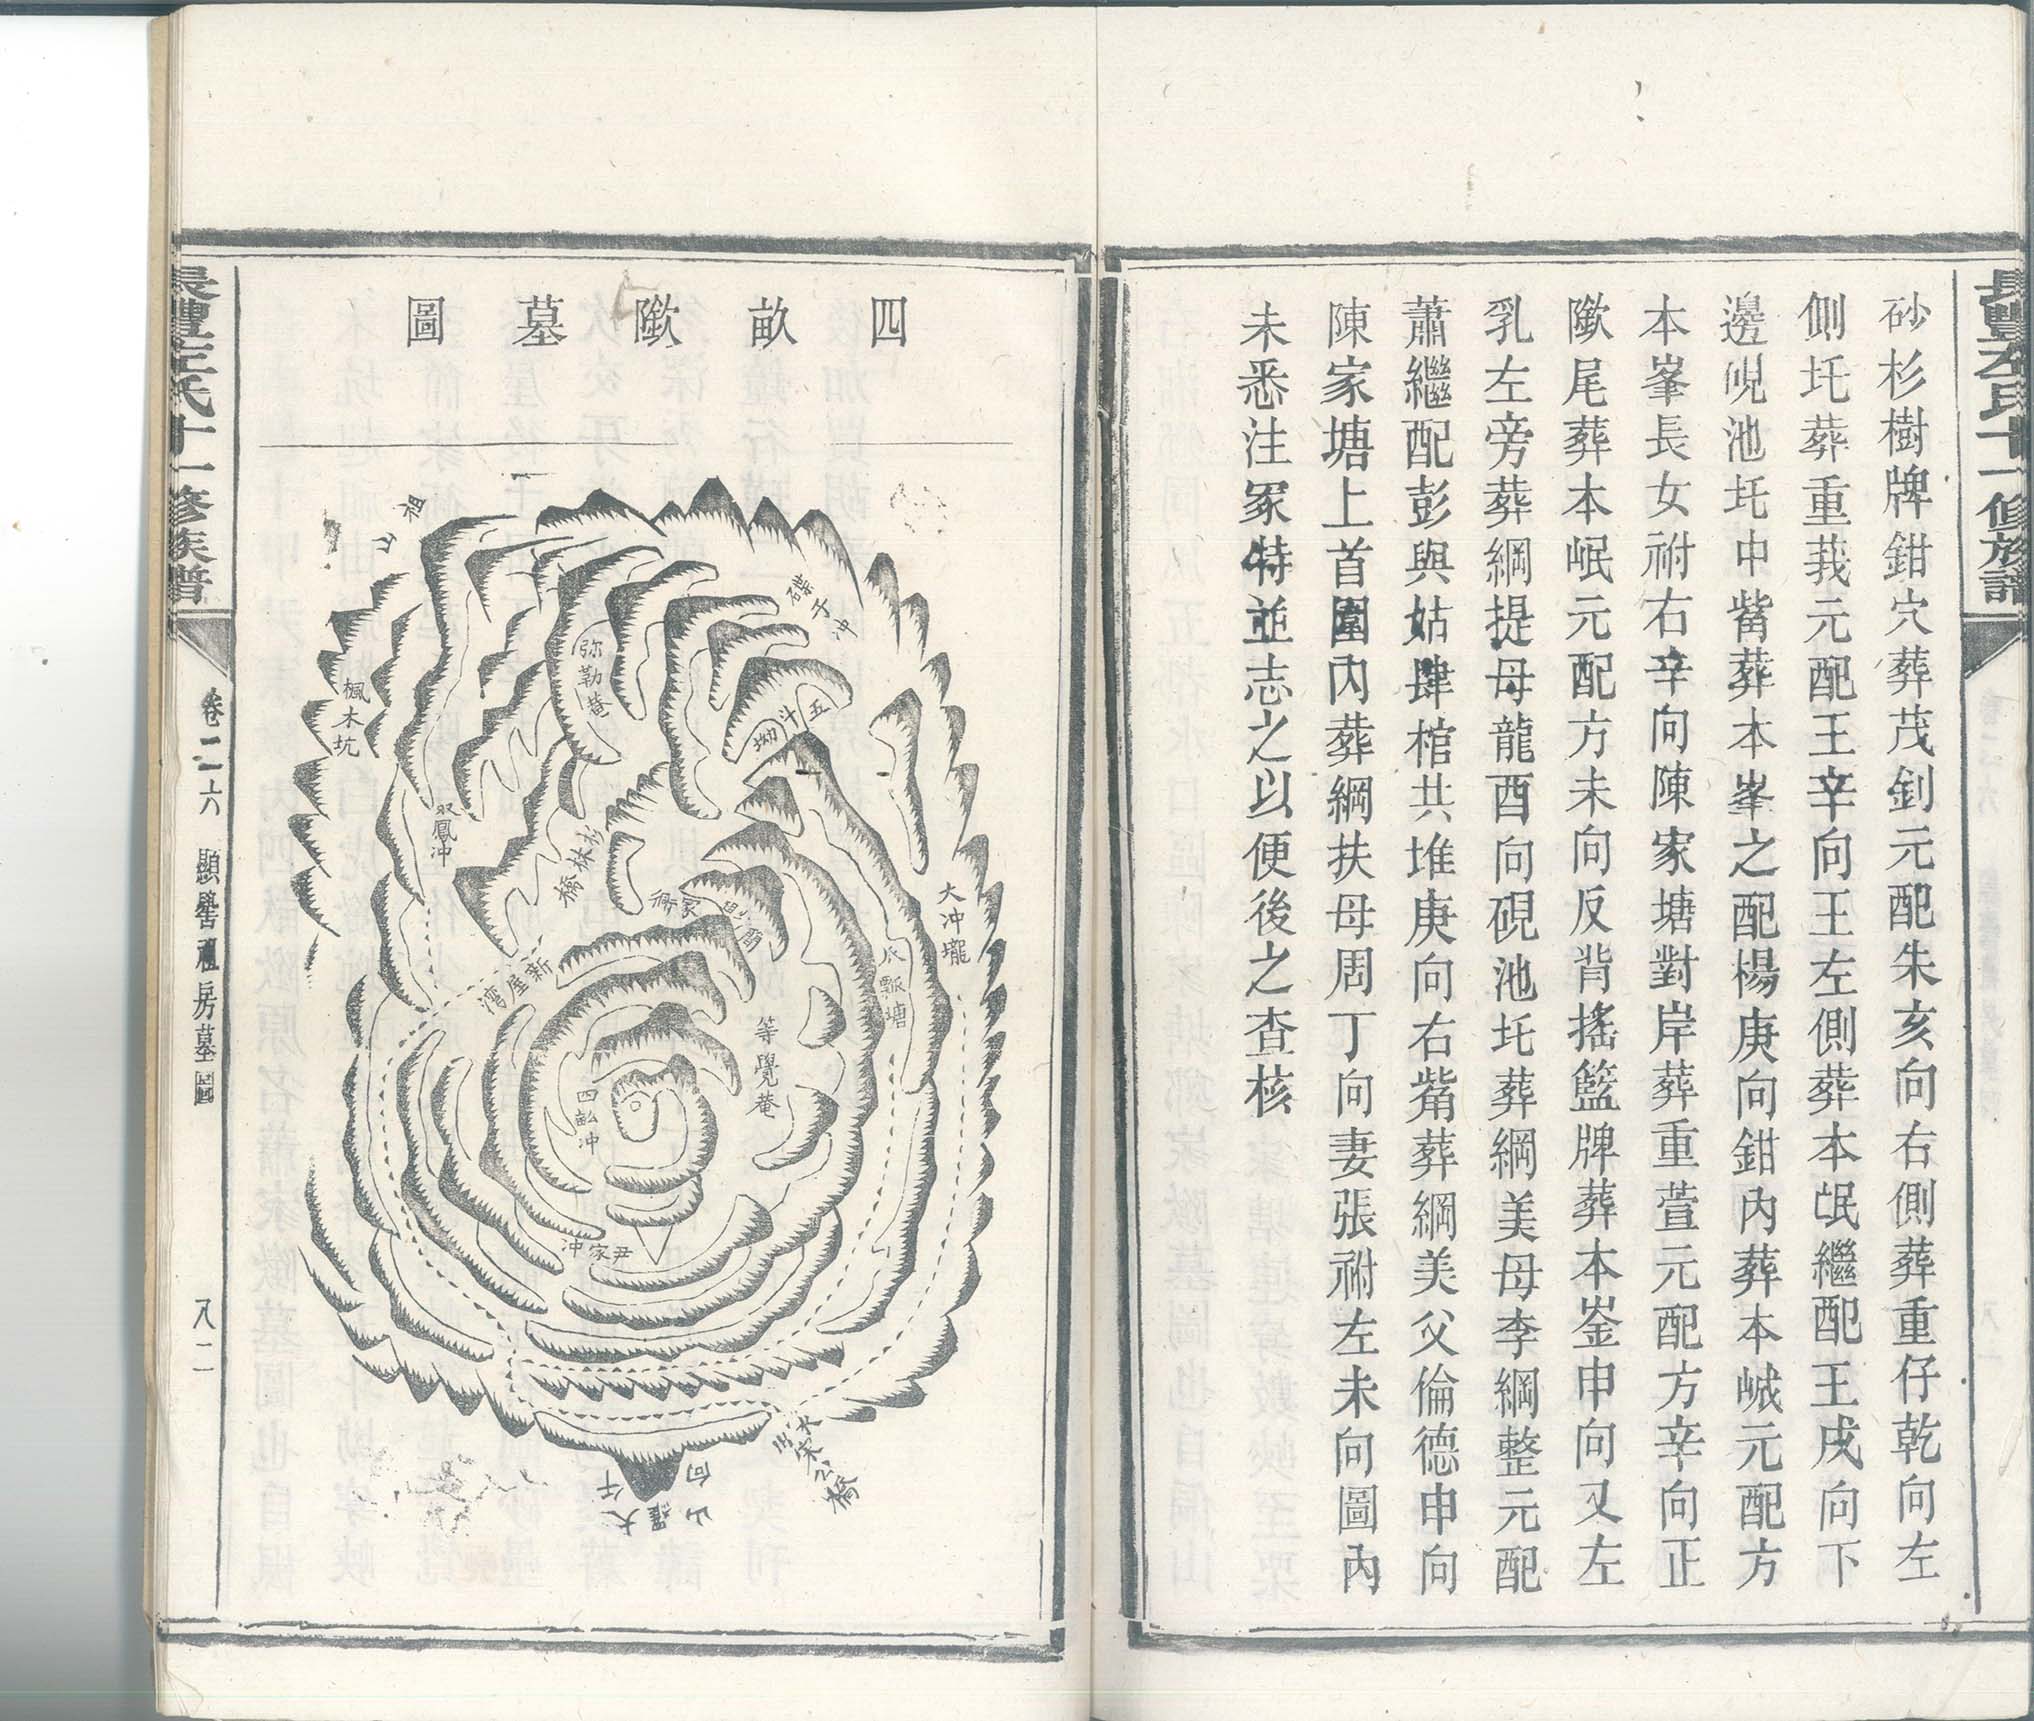 長豐左氏十一修族譜
砂杉樹牌鉗穴葬茂釗元配朱亥向右側葬重仔乾向左
側圫葬重莪元配王辛向王左側葬本氓繼配王戌向下
邊硯池圫中觜葬本峯之配楊庚向鉗內葬本峸元配方
本峯長女祔右辛向陳家塘對岸葬重萱元配方辛向正
歘尾葬本岷元配方未向反背搖籃牌葬本崟申向又左
乳左旁葬綱提母龍酉向硯池圫葬綱美母李綱整元配
蕭繼配彭與姑肆棺共堆庚向右觜葬綱美父倫德申向
陳家塘上首圍內葬綱扶母周丁向妻張祔左未向圖內
未悉注冢特並志之以便後之查核
四畝歘墓圖
祖山
碟子冲
弥勒菴
五斗坳
楓木坑
双鳳冲
杉林橋
大冲壠
瓜瓢塘
新屋湾
等覺菴
四畝冲
尹家冲
水出宋公橋
大羅山
午向
長豐左氏十一修族譜
卷二六
顯譽禮房墓圖
八二